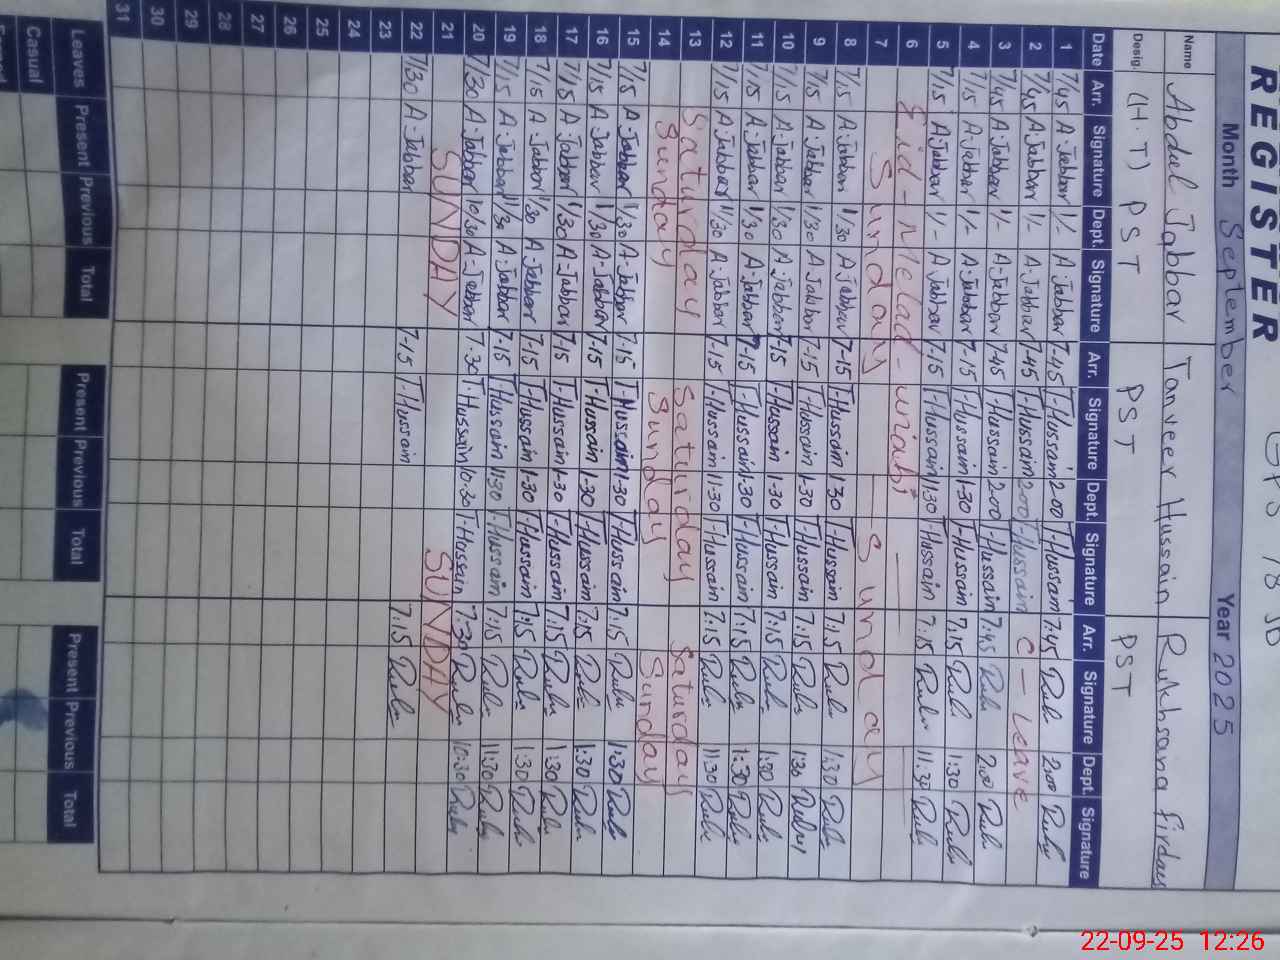 REGISTER
Month September Year 2025
Name Abdul Jabbar Tanveer Hussain Rukhsana Firdous
Desig. (H.T) PST PST PST
Date Arr. Signature Dept. Signature Arr. Signature Dept. Signature Arr. Signature Dept. Signature
1 7/45 A.Jabbar 1/- A.Jabbar 7-45 T-Hussain 2-00 T-Hussain 7:45 Rubi 2:00 Rubi
2 7/45 A.Jabbar 1/- A.Jabbar 7-45 T-Hussain 2-00 T-Hussain C - Leave
3 7/45 A.Jabbar 1/- A.Jabbar 7-45 T-Hussain 2-00 T-Hussain 7:45 Rubi 2:00 Rubi
4 7/15 A.Jabbar 1/- A.Jabbar 7-15 T-Hussain 1-30 T-Hussain 7:15 Rubi 1:30 Rubi
5 7/15 A.Jabbar 1/- A.Jabbar 7-15 T-Hussain 11:30 T-Hussain 7:15 Rubi 11:30 Rubi
6 Eid - Melad - unabi
7 Sunday Sunday
8 7/15 A.Jabbar 1/30 A.Jabbar 7-15 T-Hussain 1-30 T-Hussain 7:15 Rubi 1:30 Rubi
9 7/15 A.Jabbar 1/30 A.Jabbar 7-15 T-Hussain 1-30 T-Hussain 7:15 Rubi 1:30 Rubi
10 7/15 A.Jabbar 1/30 A.Jabbar 7-15 T-Hussain 1-30 T-Hussain 7:15 Rubi 1:30 Rubi
11 7/15 A.Jabbar 1/30 A.Jabbar 7-15 T-Hussain 1-30 T-Hussain 7:15 Rubi 1:30 Rubi
12 7/15 A.Jabbar 11/30 A.Jabbar 7-15 T-Hussain 11-30 T-Hussain 7:15 Rubi 11:30 Rubi
13 Saturday Saturday Saturday
14 Sunday Sunday Sunday
15 7/15 A.Jabbar 1/30 A.Jabbar 7-15 T-Hussain 1-30 T-Hussain 7:15 Rubi 1:30 Rubi
16 7/15 A.Jabbar 1/30 A.Jabbar 7-15 T-Hussain 1-30 T-Hussain 7:15 Rubi 1:30 Rubi
17 7/15 A.Jabbar 1/30 A.Jabbar 7-15 T-Hussain 1-30 T-Hussain 7:15 Rubi 1:30 Rubi
18 7/15 A.Jabbar 1/30 A.Jabbar 7-15 T-Hussain 1-30 T-Hussain 7:15 Rubi 1:30 Rubi
19 7/15 A.Jabbar 11/30 A.Jabbar 7-15 T-Hussain 11:30 T-Hussain 7:15 Rubi 11:30 Rubi
20 7/30 A.Jabbar 10/30 A.Jabbar 7-30 T-Hussain 10:30 T-Hussain 7:30 Rubi 10:30 Rubi
21 SUNDAY SUNDAY
22 7/30 A.Jabbar 7-15 T-Hussain 7:15 Rubi
23
24
25
26
27
28
29
30
31
Leaves Present Previous Total Present Previous Total Present Previous Total
Casual
22-09-25 12:26